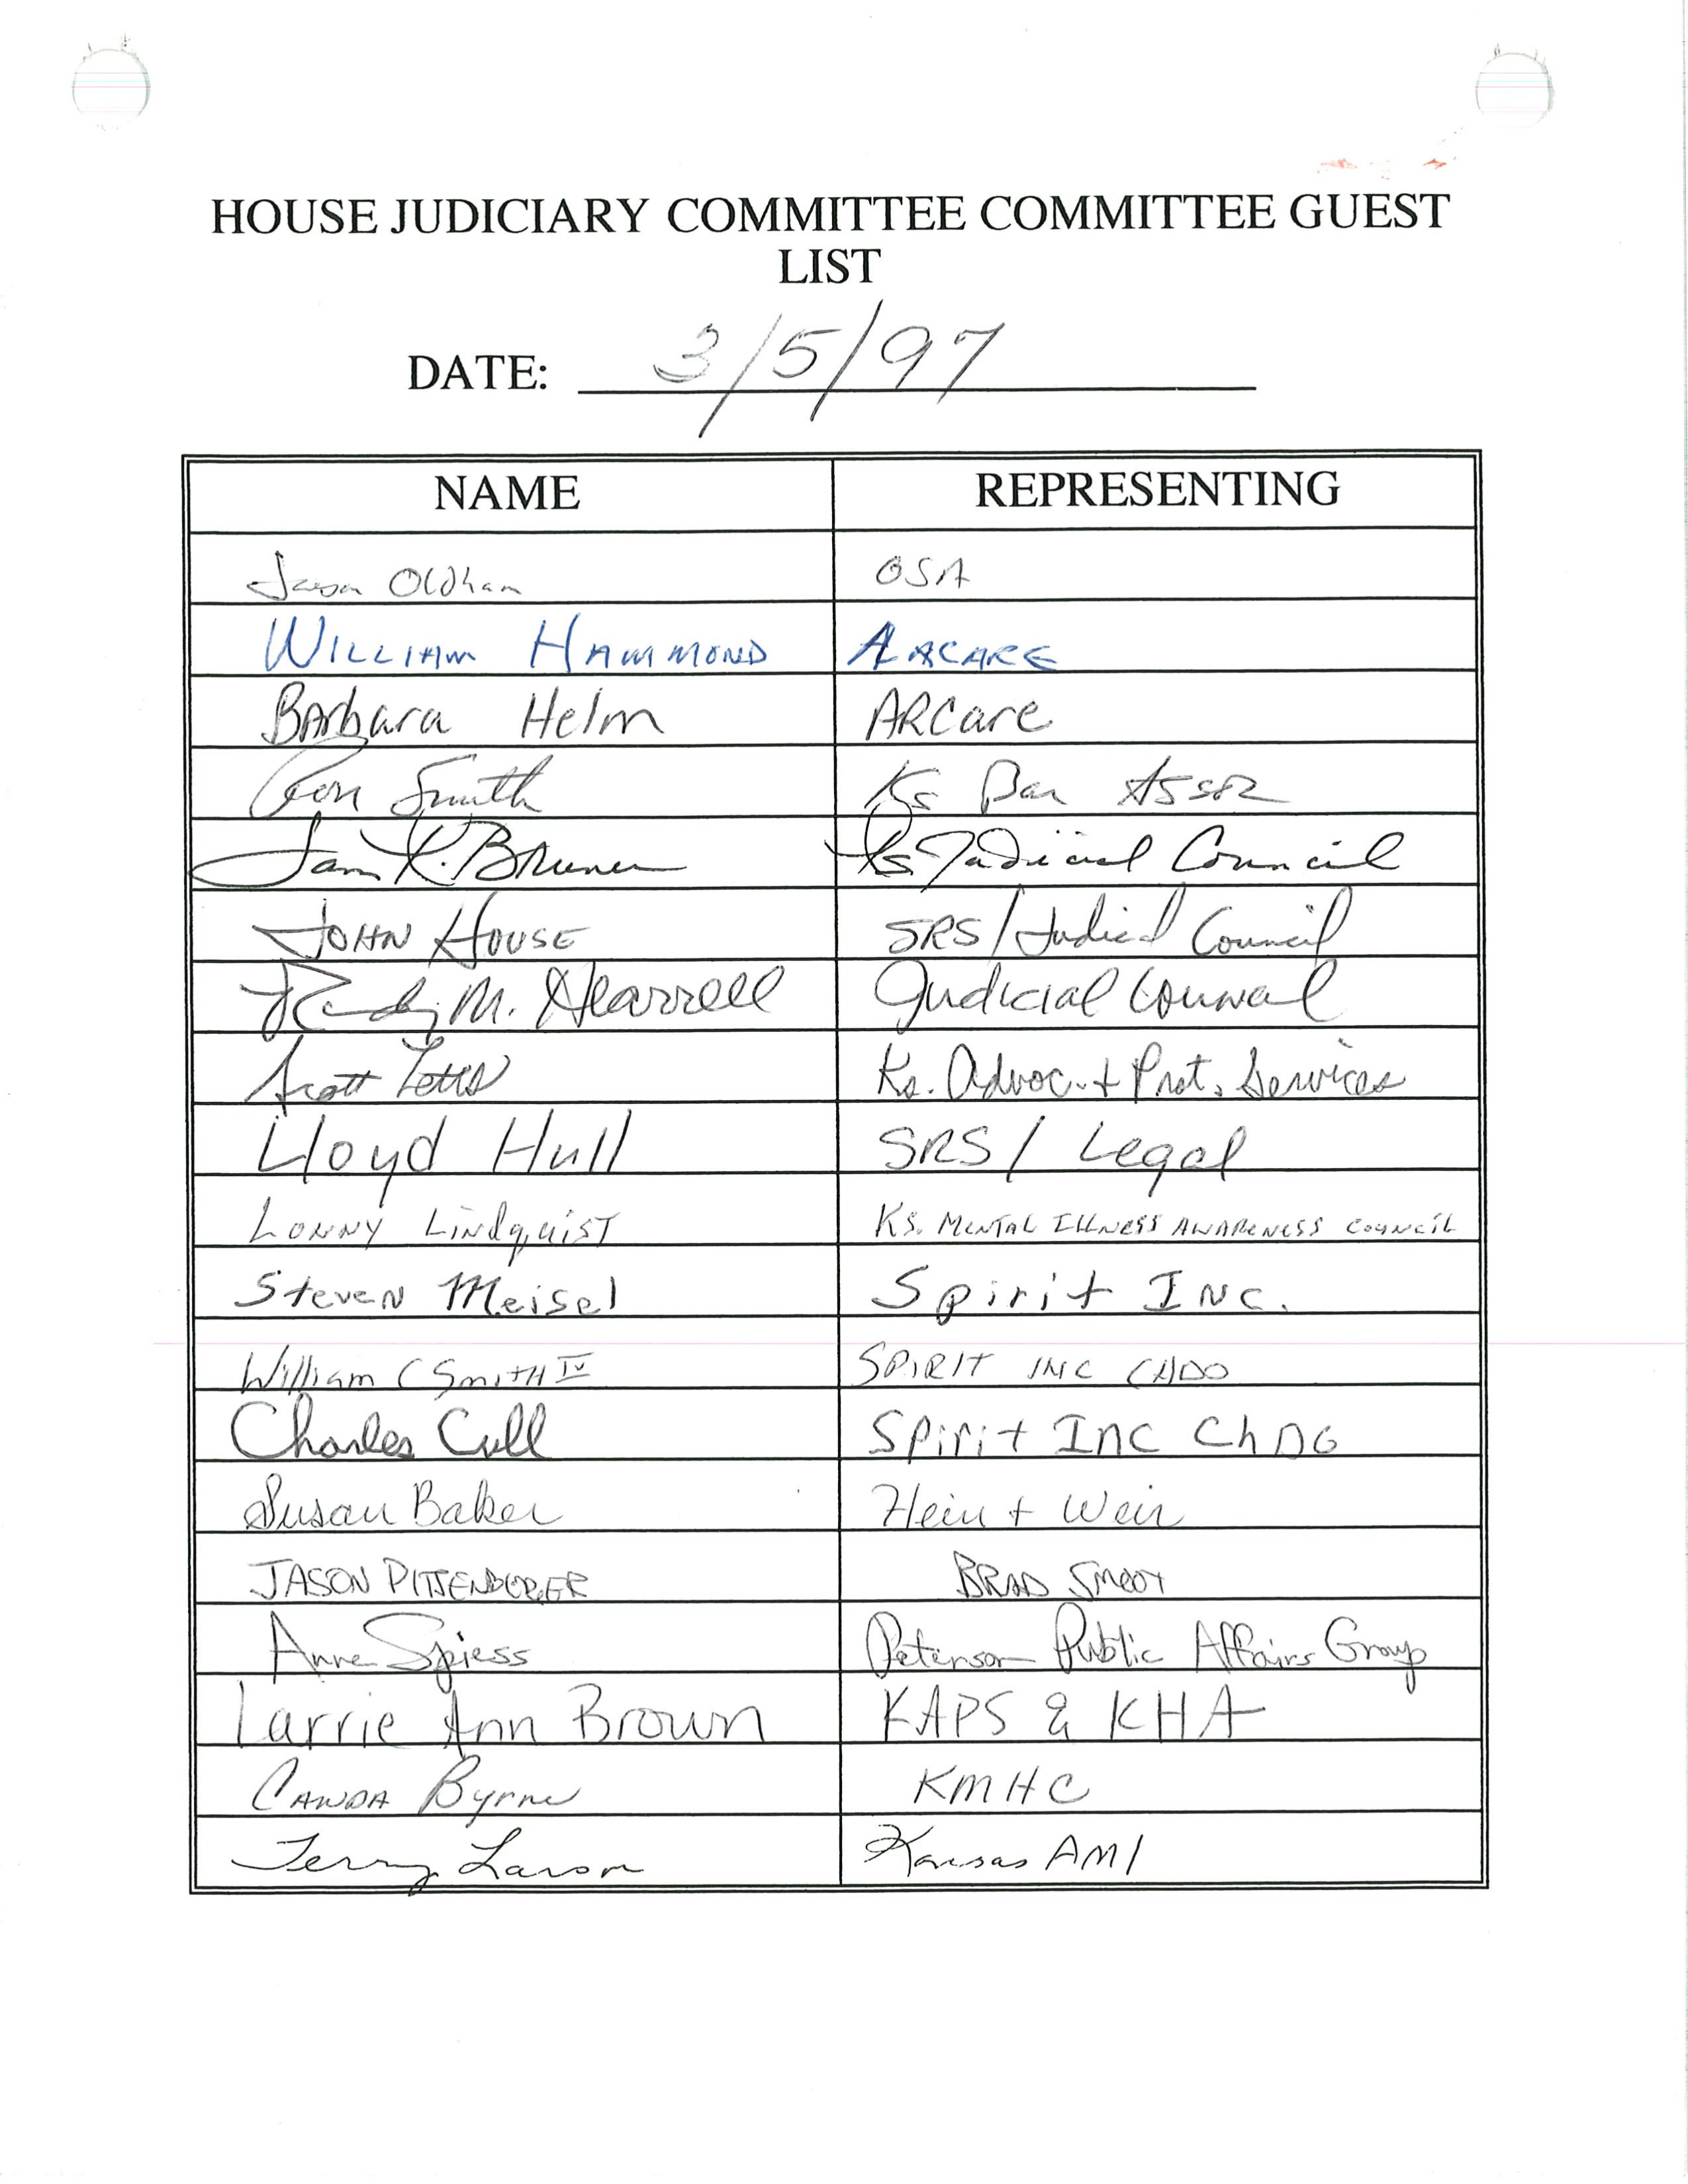 HOUSE JUDICIARY COMMITTEE COMMITTEE GUEST
LIST
DATE: 3/5/97
NAME REPRESENTING
Jason Oldham OSA
WILLIAM HAMMOND ARCARE
Barbara Helm ARCare
Ron Smith Ks Bar Assn
Sam K. Bruner Ks Judicial Council
JOHN HOUSE SRS/Judicial Council
Randy M. Hearrell Judicial Council
Scott Letts Ks. Advoc. + Prot. Services
Lloyd Hull SRS / Legal
LONNY LINDQUIST KS. MENTAL ILLNESS AWARENESS COUNCIL
Steven Meisel Spirit INC.
William C SMITH IV SPIRIT INC CHDO
Charles Cull Spirit INC ChDO
Susan Baker Hein + Weir
JASON PITSENBERGER BRAD SMOOT
Anne Spiess Peterson Public Affairs Group
Larrie Ann Brown KAPS & KHA
CANDA Byrne KMHC
Terry Larson Kansas AMI